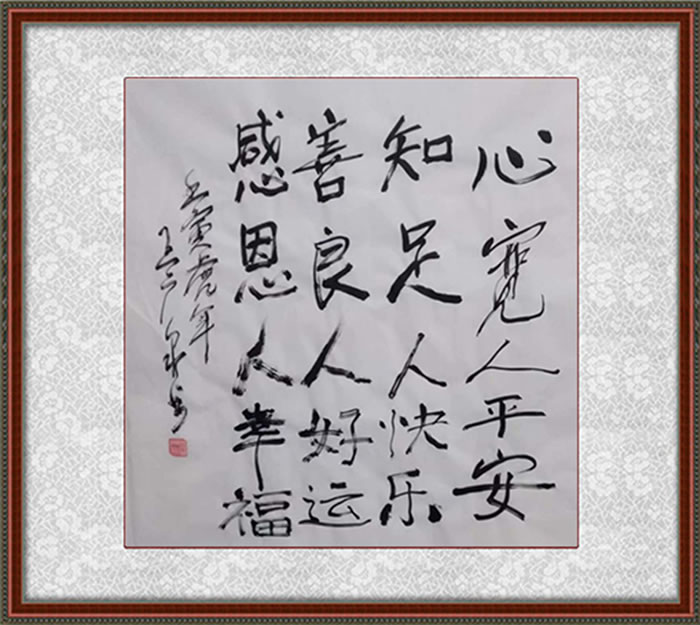 心宽人平安
知足人快乐
善良人好运
感恩人幸福
壬寅虎年